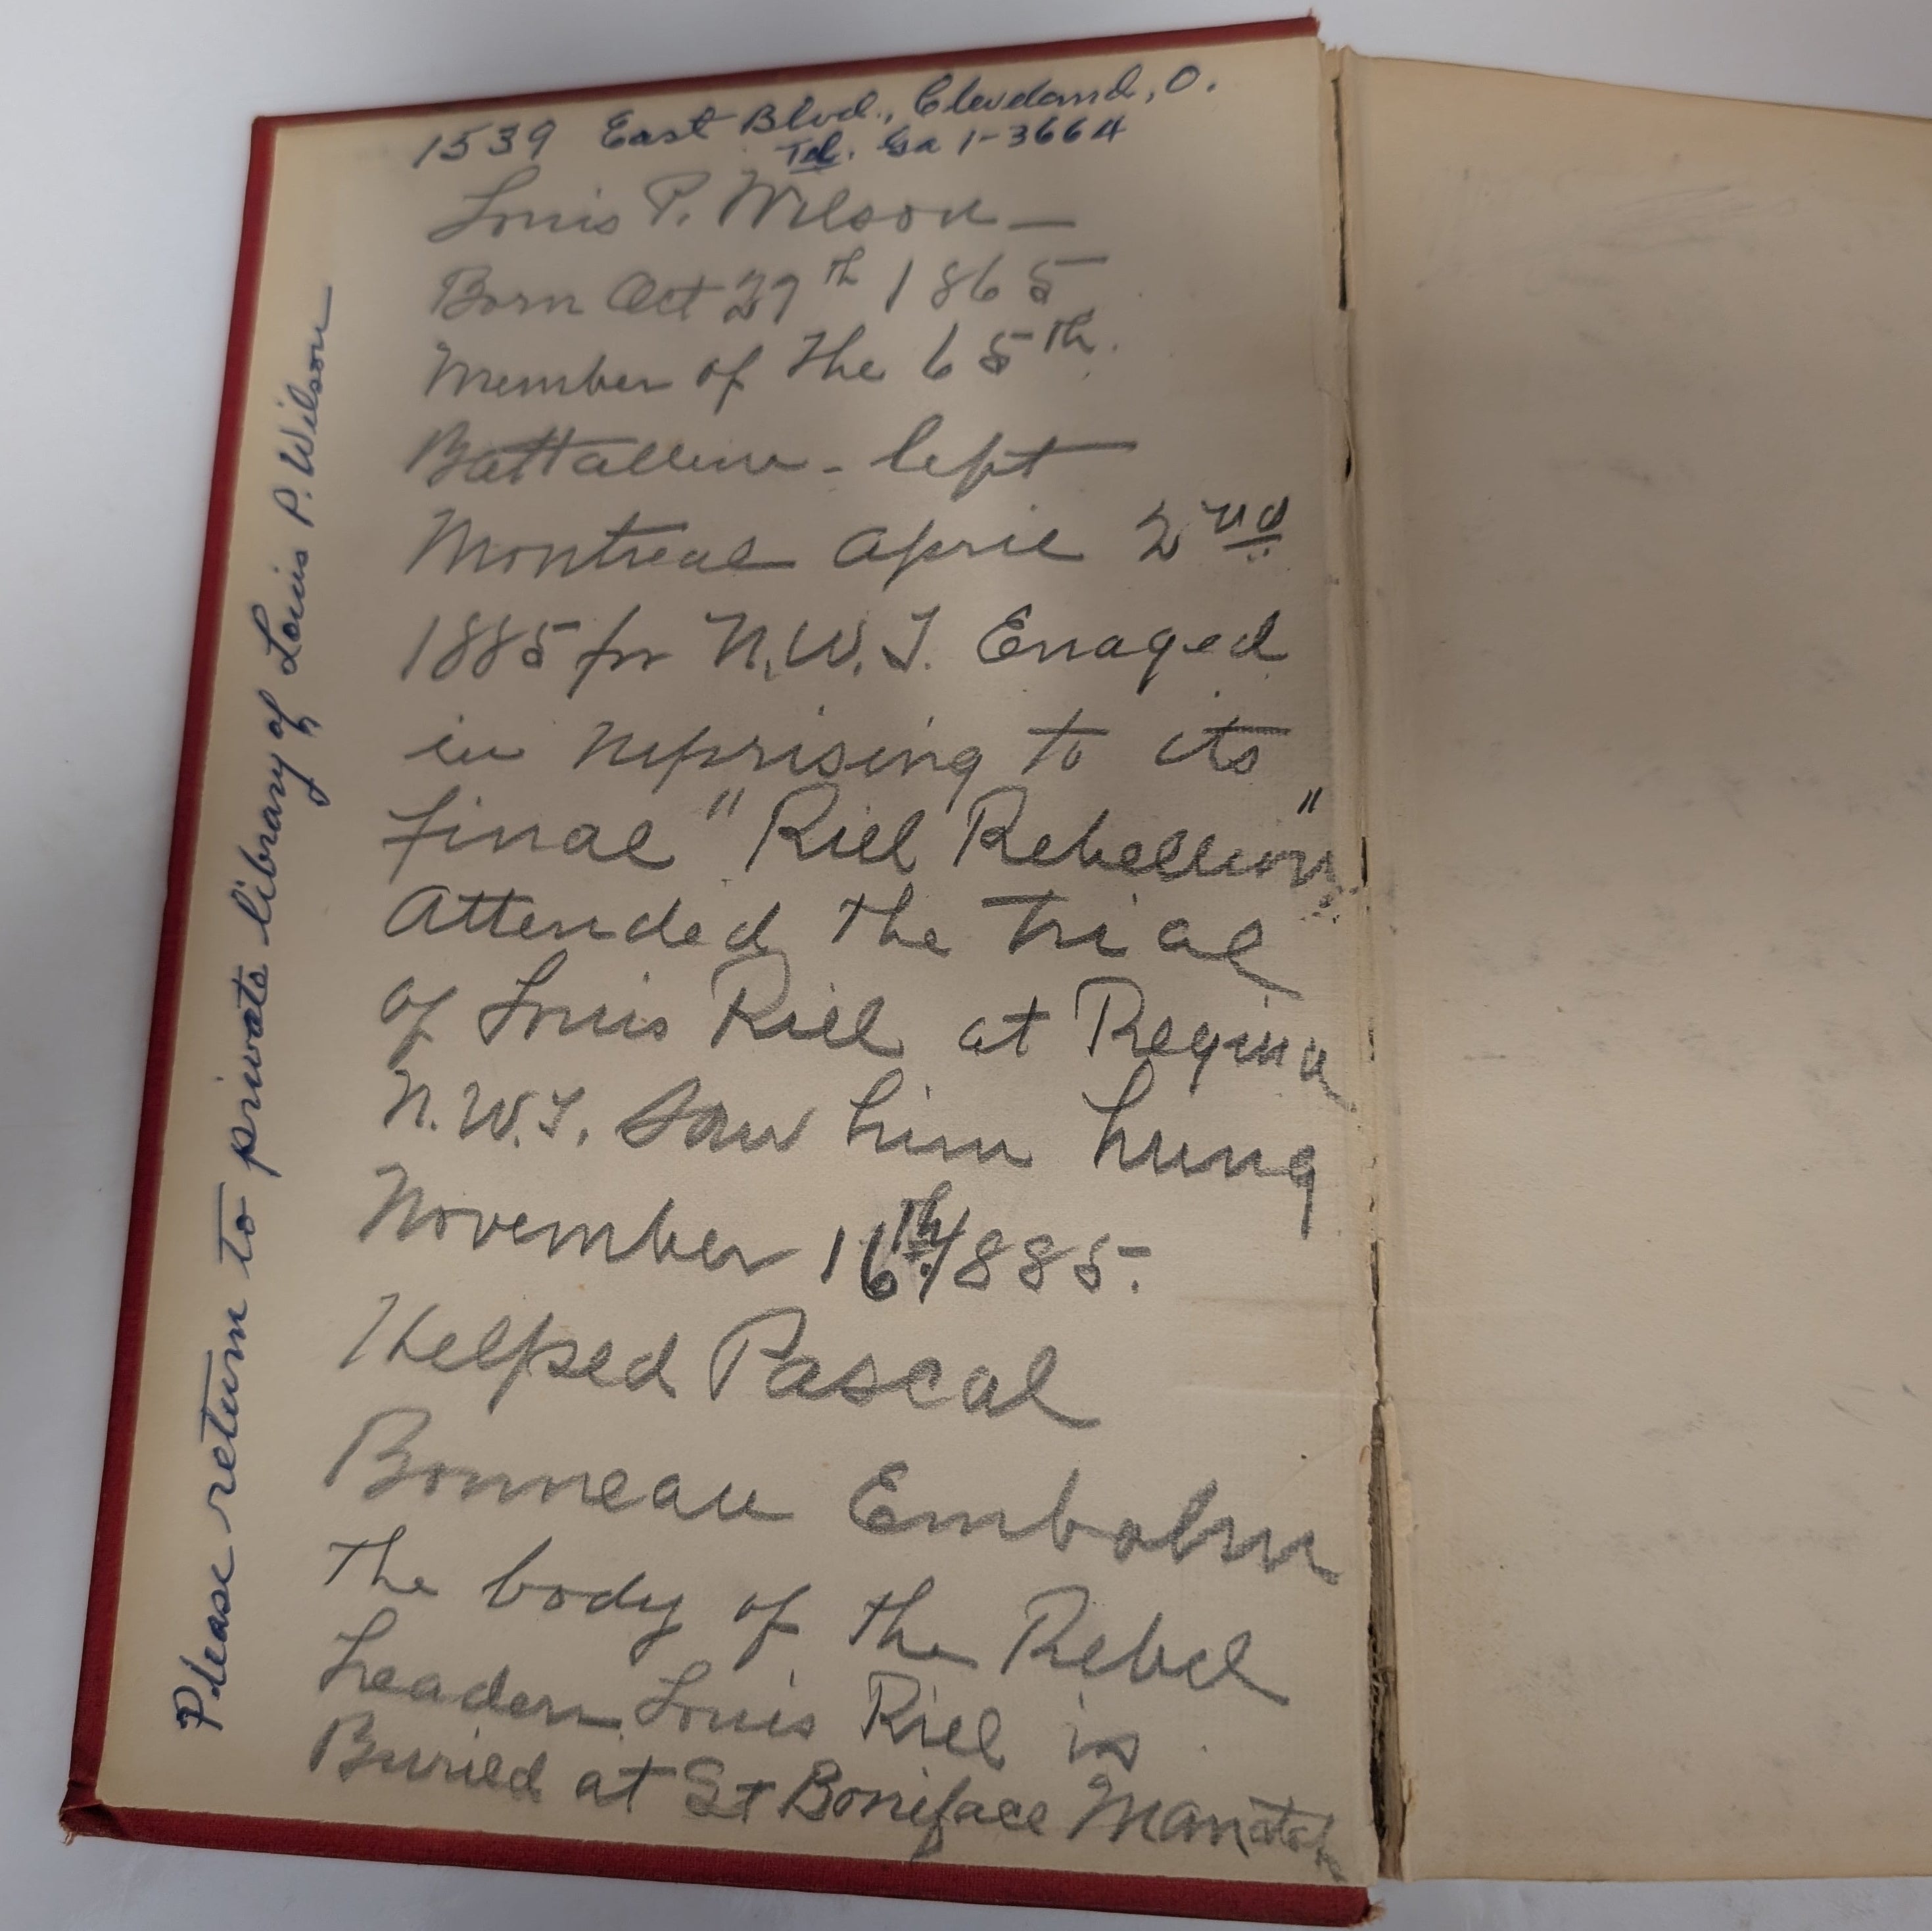 1539 East Blvd., Cleveland, O.
Tel. Ga 1-3664
Louis P. Wilson —
Born Oct 29th 1865
Member of the 65th.
Battallion - left
Montreal April 2nd
1885 for N.W.T. Enaged
in uprising to its
final "Riel Rebellion"
Attended the trial
of Louis Riel at Regina
N.W.T. Saw him hung
November 16th 1885.
Helped Pascal
Bonneau Embalm
the body of the Rebel
Leader Louis Riel is
Buried at St Boniface
Please return to private library of Louis P. Wilson